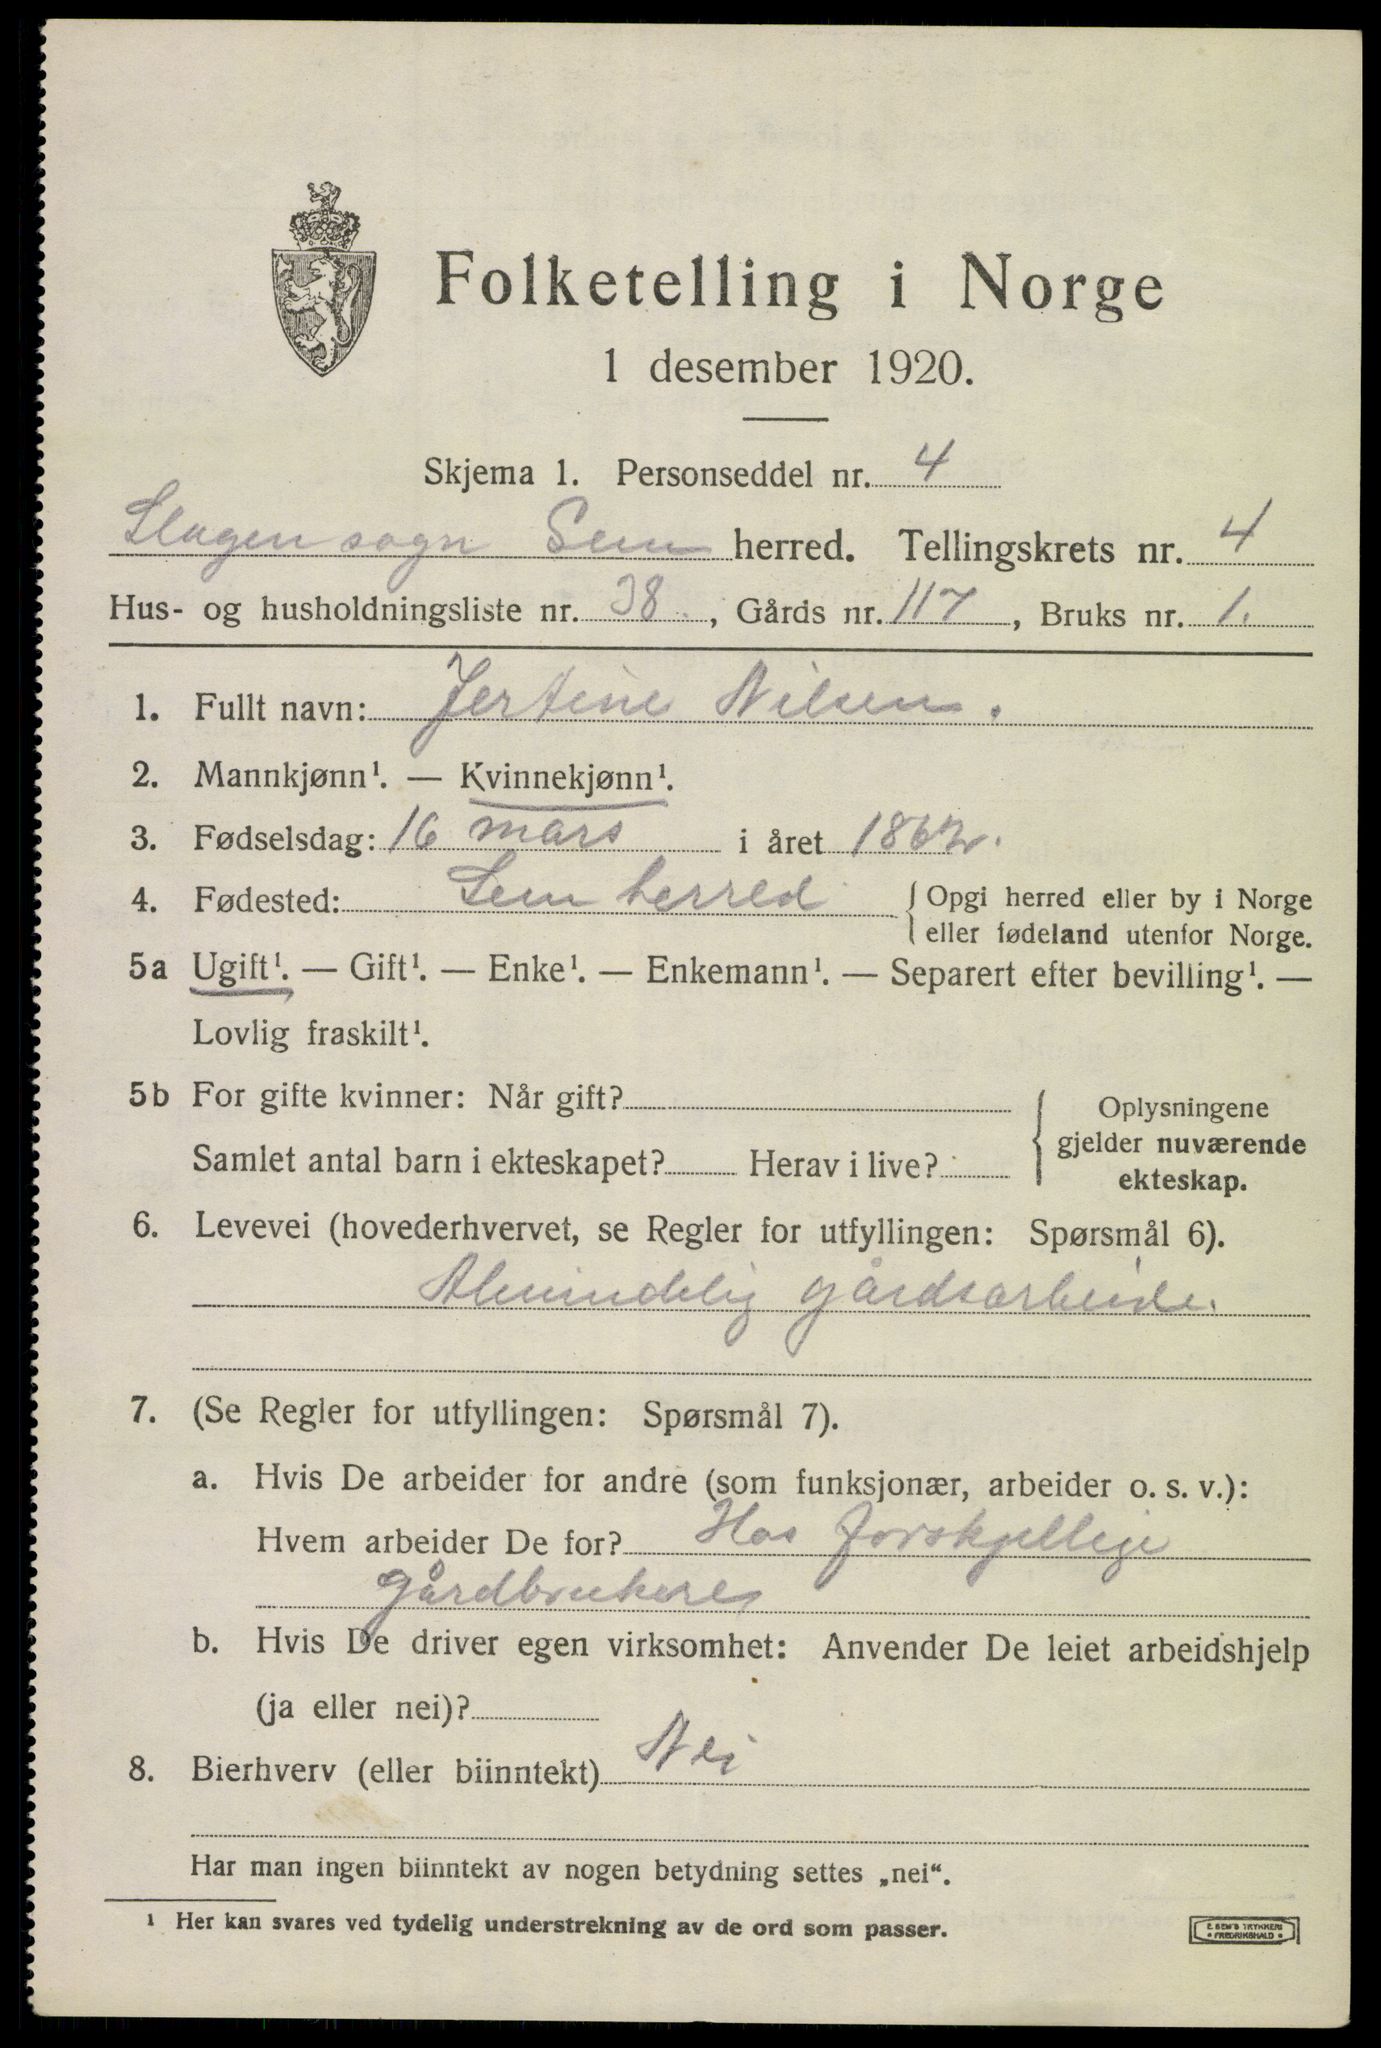 Folketelling i Norge
1 desember 1920.
Skjema 1. Personseddel nr. 4
Slagen sogn Sem herred. Tellingskrets nr. 4
Hus- og husholdningsliste nr. 38., Gårds nr. 117, Bruks nr. 1.
1. Fullt navn: Jertine Nilsen.
2. Mannkjønn¹. — Kvinnekjønn¹.
3. Fødselsdag: 16 mars i året 1862.
4. Fødested: Sem herred { Opgi herred eller by i Norge
eller fødeland utenfor Norge.
5a Ugift¹. — Gift¹. — Enke¹. — Enkemann¹. — Separert efter bevilling¹. —
Lovlig fraskilt¹.
5b For gifte kvinner: Når gift?
Samlet antal barn i ekteskapet? Herav i live?
Oplysningene
gjelder nuværende
ekteskap.
6. Levevei (hovederhvervet, se Regler for utfyllingen: Spørsmål 6).
Almindelig gårdsarbeide.
7. (Se Regler for utfyllingen: Spørsmål 7).
a. Hvis De arbeider for andre (som funksjonær, arbeider o. s. v.):
Hvem arbeider De for? Hos forskjellige
gårdbrukere
b. Hvis De driver egen virksomhet: Anvender De leiet arbeidshjelp
(ja eller nei)?
8. Bierhverv (eller biinntekt) Nei
Har man ingen biinntekt av nogen betydning settes „nei“.
¹ Her kan svares ved tydelig understrekning av de ord som passer.
E. SEM'S TRYKKERI
• FREDRIKSHALD •